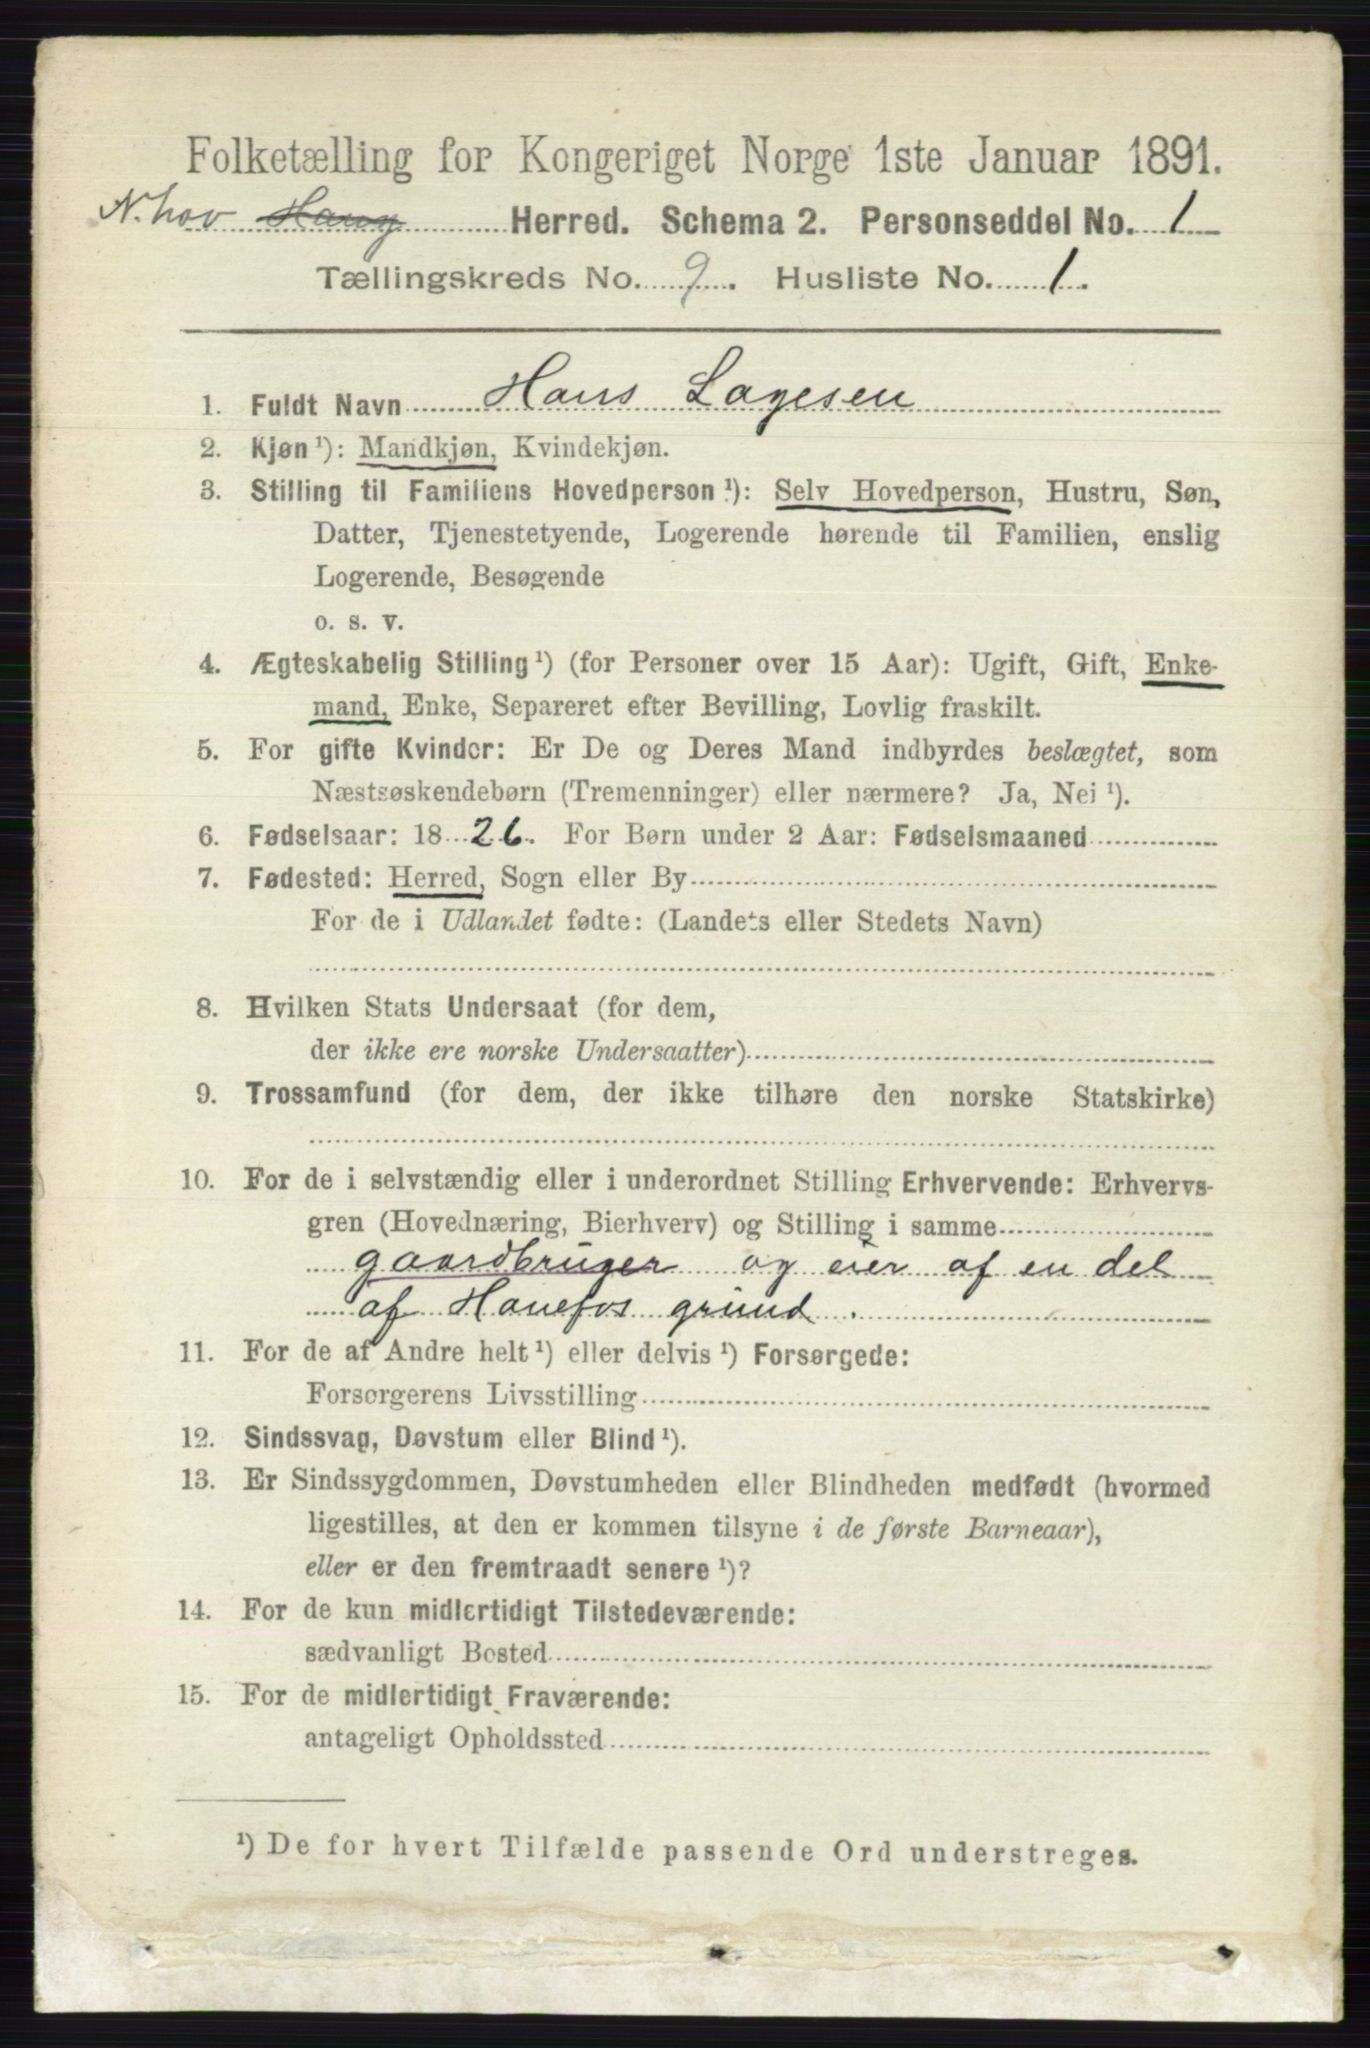 Folketælling for Kongeriget Norge 1ste Januar 1891.
N.hov Haug Herred. Schema 2. Personseddel No. 1
Tællingskreds No. 9. Husliste No. 1.
1. Fuldt Navn Hans Lagesen
2. Kjøn ¹): Mandkjøn, Kvindekjøn.
3. Stilling til Familiens Hovedperson ¹): Selv Hovedperson, Hustru, Søn,
Datter, Tjenestetyende, Logerende hørende til Familien, enslig
Logerende, Besøgende
o. s. v.
4. Ægteskabelig Stilling ¹) (for Personer over 15 Aar): Ugift, Gift, Enke-
mand, Enke, Separeret efter Bevilling, Lovlig fraskilt.
5. For gifte Kvinder: Er De og Deres Mand indbyrdes beslægtet, som
Næstsøskendebørn (Tremenninger) eller nærmere? Ja, Nei ¹).
6. Fødselsaar: 18 26. For Børn under 2 Aar: Fødselsmaaned
7. Fødested: Herred, Sogn eller By
For de i Udlandet fødte: (Landets eller Stedets Navn)
8. Hvilken Stats Undersaat (for dem,
der ikke ere norske Undersaatter)
9. Trossamfund (for dem, der ikke tilhøre den norske Statskirke)
10. For de i selvstændig eller i underordnet Stilling Erhvervende: Erhvervs-
gren (Hovednæring, Bierhverv) og Stilling i samme
gaardbruger og eier af en del
af Hønefos grund.
11. For de af Andre helt ¹) eller delvis ¹) Forsørgede:
Forsørgerens Livsstilling
12. Sindssvag, Døvstum eller Blind ¹).
13. Er Sindssygdommen, Døvstumheden eller Blindheden medfødt (hvormed
ligestilles, at den er kommen tilsyne i de første Barneaar),
eller er den fremtraadt senere ¹)?
14. For de kun midlertidigt Tilstedeværende:
sædvanligt Bosted
15. For de midlertidigt Fraværende:
antageligt Opholdssted
¹) De for hvert Tilfælde passende Ord understreges.